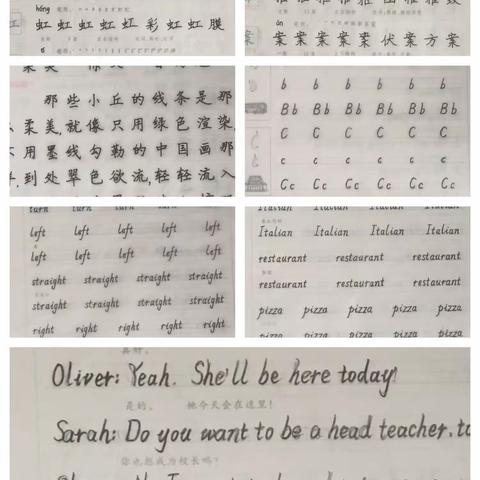 hóng
虹 虹 虹 虹 虹 彩 虹 虹 膜
àn
案 案 案 案 案 伏 案 方 案
那些小丘的线条是那
柔美,就像只用绿色渲染,
不用墨线勾勒的中国画那
到处翠色欲流,轻轻流入
b b b b b b
Bb Bb Bb Bb Bb Bb
C C C C C C
c c c c c c
Cc Cc Cc Cc Cc Cc
turn turn turn turn
left left left left left
left left left left left
straight straight straight straight
straight straight straight straight
right right right right right
Italian Italian Italian Italian
Italian Italian Italian Italian
restaurant restaurant restaurant
restaurant restaurant restaurant
pizza pizza pizza pizza pizza
pizza pizza pizza pizza pizza
Oliver: Yeah. She'll be here today!
是的。 她今天会在这里!
Sarah: Do you want to be a head teacher, to
你也想成为校长吗?